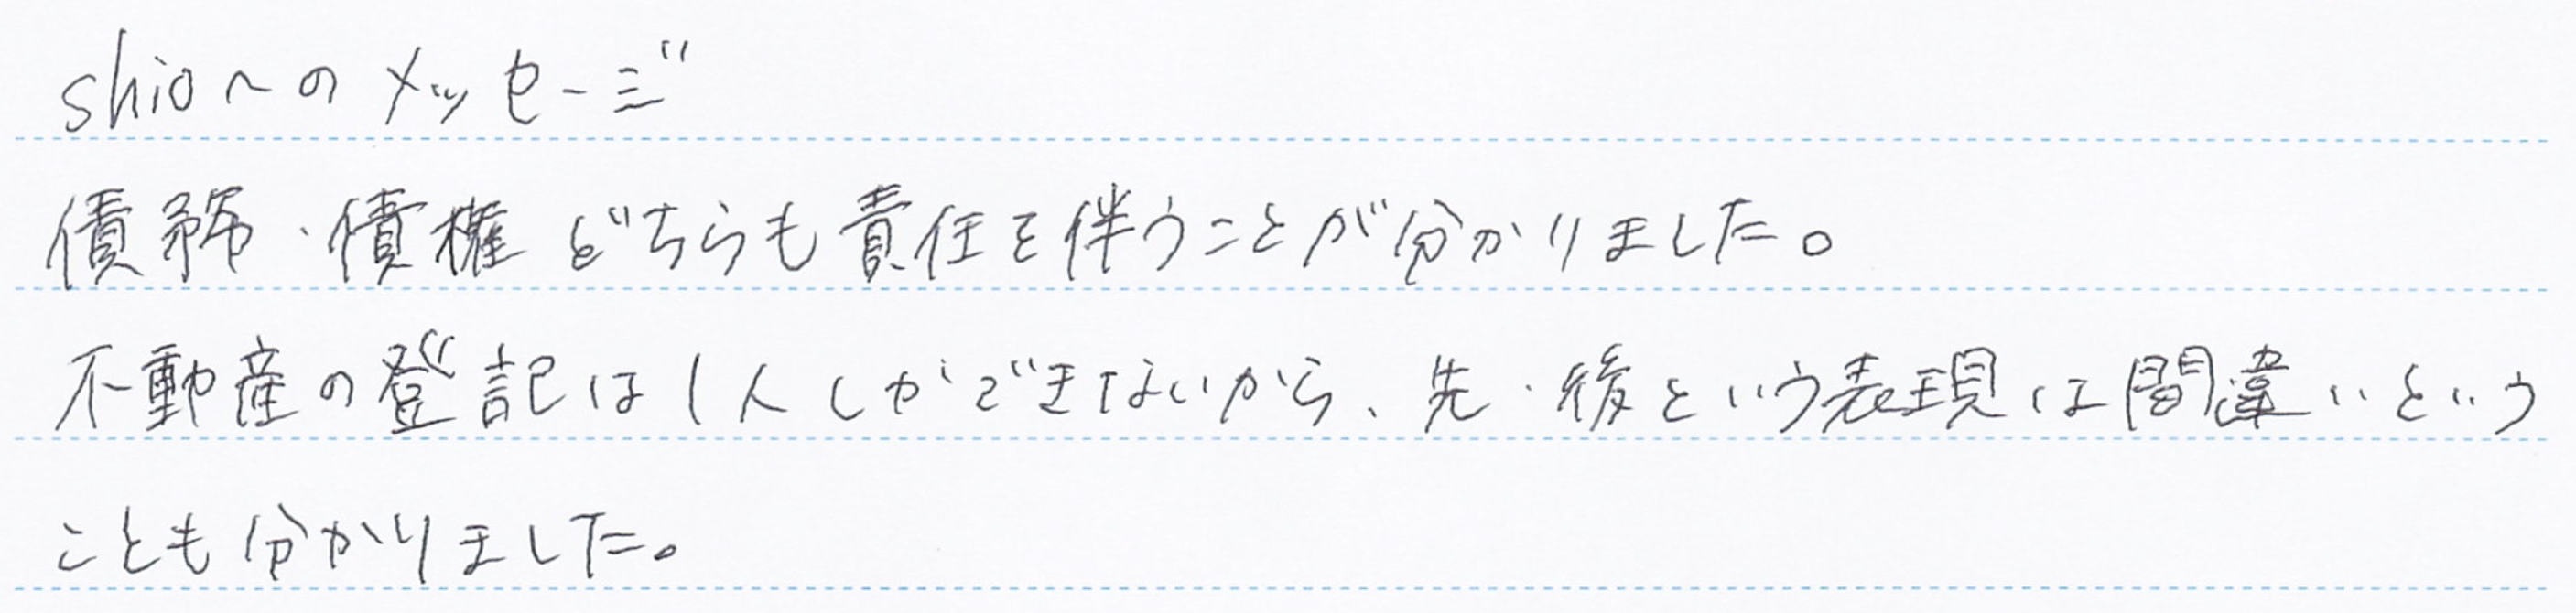 shioへのメッセージ
債務・債権どちらも責任を伴うことが分かりました。
不動産の登記は1人しかできないから、先・後という表現は間違いという
ことも分かりました。